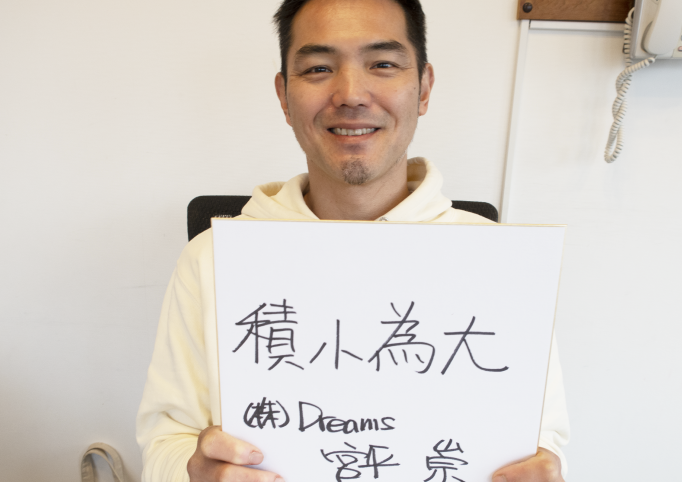 積小為大
(株) Dreams
宮平 崇